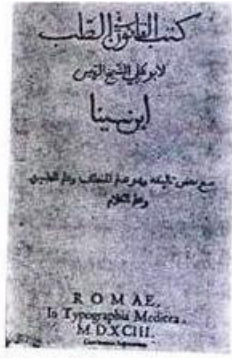 كتب القانون في الطب
لابو علي الشيخ الرئيس
ابن سينا
مع بعض تاليفه وهو علم المنطق وعلم الطبيعي
وعلم الكلام
ROMAE,
In Typographia Medicea.
M.D.XCIII.